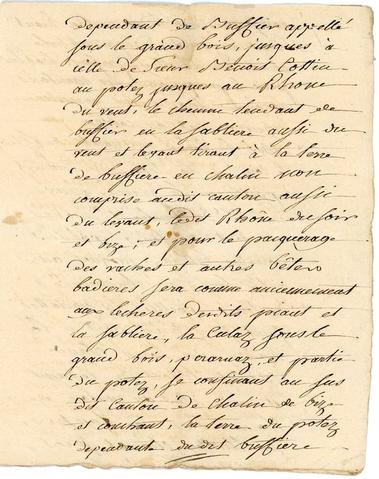 dependant de Buffier appellé
sous le grand bois, jusques à
celle de Sieur Benoit Cottin
au potez jusques au Rhone
du vent, le chemin tendant de
buffier en la sabliere aussi du
vent et levant tirant à la terre
de buffiere en chalin non
comprise audit canton aussi
du levant, ledit Rhône du soir
et bize, et pour le paquerage
des vaches et autres bêtes
badieres sera comme anciennement
aux lecheres desdits piaut et
la sabliere, la Culaz sous le
grand bois, perarnaz, et partie
du potez, se confinant au sus
dit Canton de Chalin de bize
et couchant, la terre du potez
dependante du dit buffiere